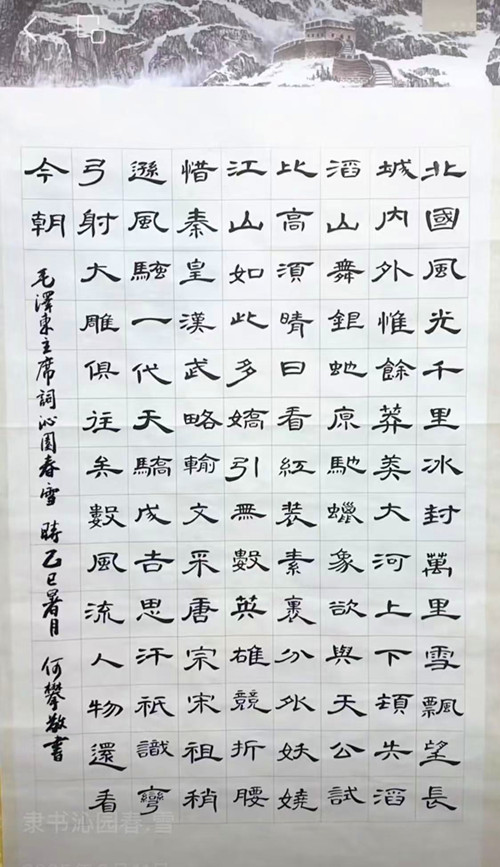 北國風光千里冰封萬里雪飄望長
城内外惟餘莽莽大河上下頓失滔
滔山舞銀蛇原馳蠟象欲與天公試
比高須晴日看紅裝素裹分外妖嬈
江山如此多嬌引無數英雄競折腰
惜秦皇漢武略輸文采唐宗宋祖稍
遜風騷一代天驕成吉思汗祇識彎
弓射大雕俱往矣數風流人物還看
今朝
毛澤東主席詞沁園春雪 時乙巳暑月 何攀敬書
隶书沁园春.雪